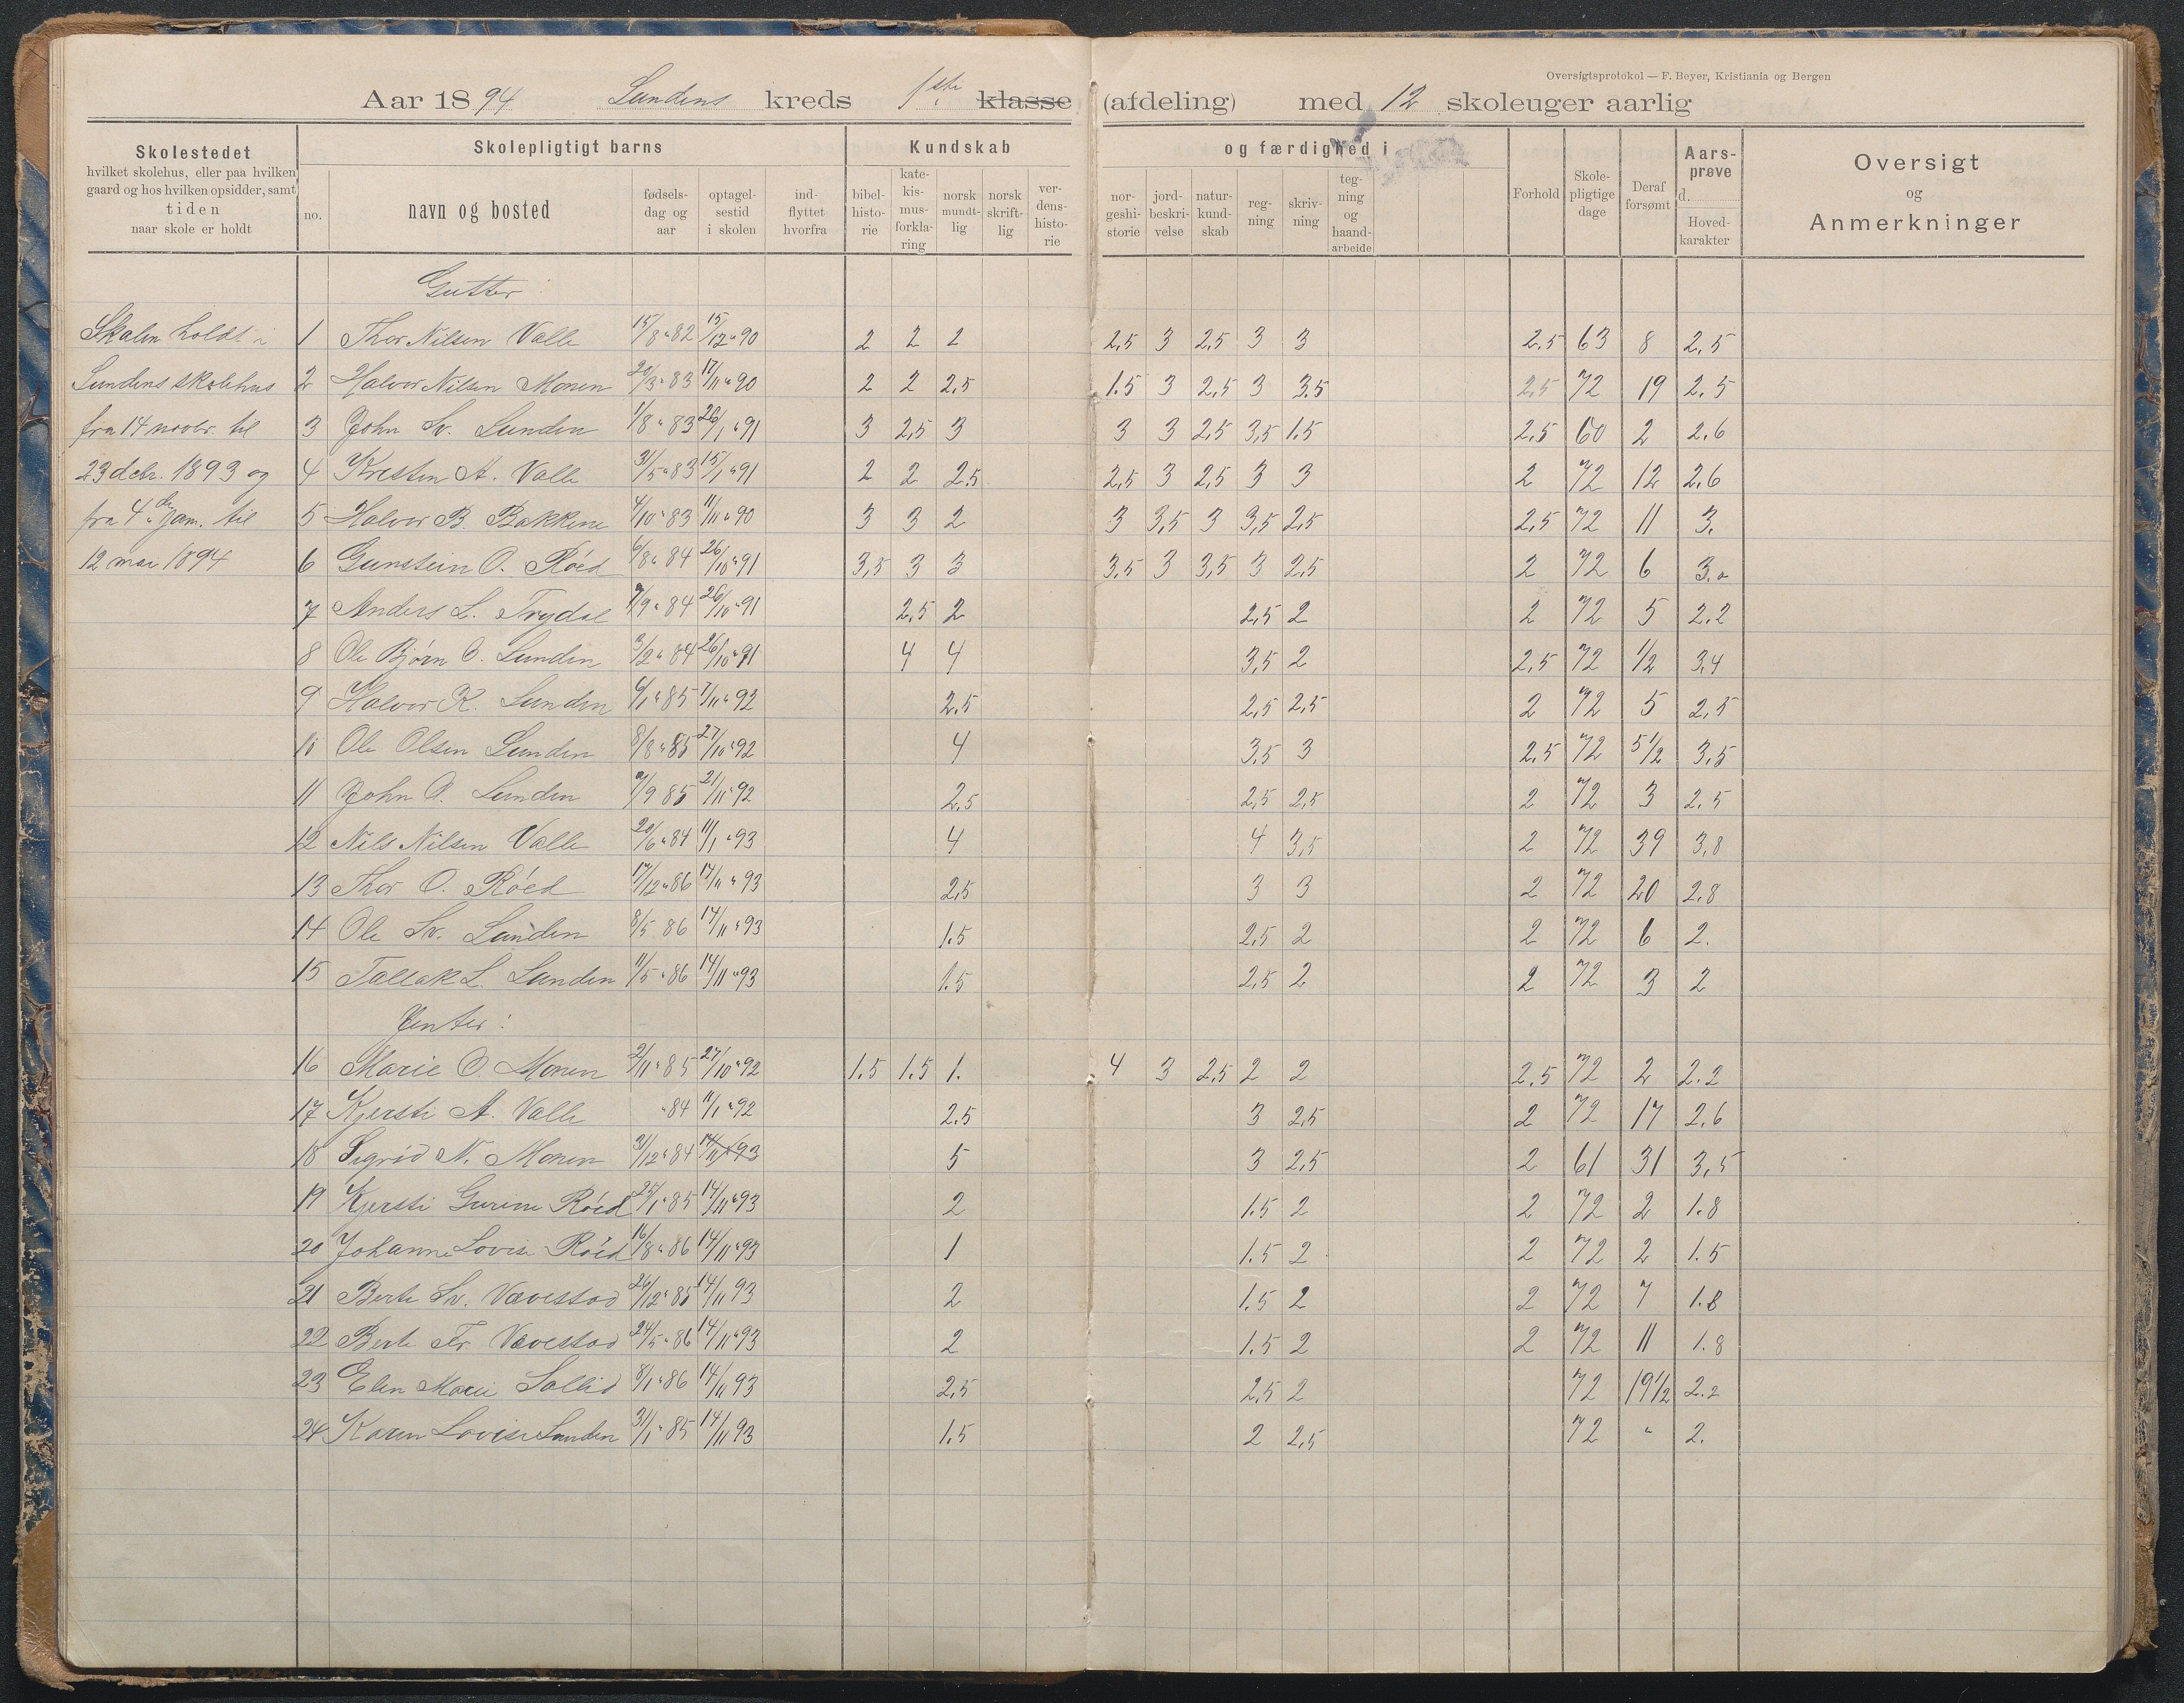 Oversigtsprotokol — F. Beyer, Kristiania og Bergen
Aar 1894 Lundens kreds 1ste klasse (afdeling) med 12 skoleuger aarlig
Skolestedet hvilket skolehus, eller paa hvilken gaard og hos hvilken opsidder, samt tiden naar skole er holdt
Skolepligtigt barns
no. navn og bosted fødsels-dag og aar optagel-sestid i skolen ind-flyttet hvorfra
Kundskab og færdighed i
bibel-histo-rie kate-kis-mus-forkla-ring norsk mundt-lig norsk skrift-lig ver-dens-histo-rie nor-geshi-storie jord-beskri-velse natur-kund-skab reg-ning skriv-ning teg-ning og haand-arbeide
Forhold Skole-pligtige dage Deraf forsømt Aars-prøve d. Hoved-karakter
Oversigt og Anmerkninger
Gutter
Skolen holdt i 1 Thor Nilsen Valle 15/8 82 15/12 90 2 2 2 2,5 3 2,5 3 3 2,5 63 8 2,5
Lundens skolehus 2 Halvor Nilsen Monen 20/3 83 17/11 90 2 2 2,5 1.5 3 2,5 3 3.5 2,5 72 19 2,5
fra 14 novbr. til 3 John Sv. Lunden 1/8 83 26/1 91 3 2,5 3 3 3 2,5 3,5 1.5 2,5 60 2 2.6
23 debr. 1893 og 4 Kresten A. Valle 31/5 83 15/1 91 2 2 2.5 2,5 3 2,5 3 3 2 72 12 2,6
fra 4de jan. til 5 Halvor B. Bakkene 4/10 83 11/11 90 3 3 2 3 3,5 3 3,5 2,5 2,5 72 11 3.
12 mai 1894 6 Gunstein O. Röed 6/8 84 26/10 91 3,5 3 3 3,5 3 3,5 3 2,5 2 72 6 3.0
7 Anders L. Trydal 9/9 84 26/10 91 2,5 2 2,5 2 2 72 5 2.2
8 Ole Bjørn O. Lunden 3/2 84 26/10 91 4 4 3,5 2 2,5 72 1/2 3,4
9 Halvor K. Lunden 6/1 85 7/11 92 2.5 2,5 2,5 2 72 5 2,5
10 Ole Olsen Lunden 8/8 85 27/10 92 4 3,5 3 2,5 72 5 1/2 3,5
11 John O. Lunden 9/9 85 21/11 92 2,5 2,5 2,5 2 72 3 2.5
12 Nils Nilsen Valle 20/6 84 11/1 93 4 4 3,5 2 72 39 3,8
13 Thor O. Röed 17/12 86 14/11 93 2,5 3 3 2 72 20 2,8
14 Ole Sv. Lunden 8/5 86 14/11 93 1.5 2,5 2 2 72 6 2.
15 Tallak L. Lunden 11/5 86 14/11 93 1.5 2,5 2 2 72 3 2
Jenter:
16 Marie O. Monen 2/11 85 27/10 92 1.5 1.5 1. 4 3 2,5 2 2 2.5 72 2 2.2
17 Kjersti A. Valle 84 11/1 92 2.5 3 2,5 2 72 17 2,6
18 Sigrid N. Monen 31/12 84 14/11 93 5 3 2,5 2 61 31 3,5
19 Kjersti Gurine Röed 25/1 85 14/11 93 2 1.5 2 2 72 2 1.8
20 Johanne Lovise Röed 16/8 86 14/11 93 1 1.5 2 2 72 2 1.5
21 Berte Sv. Vævestad 26/12 85 14/11 93 2 1.5 2 2 72 7 1.8
22 Berte Fr. Vævestad 24/5 86 14/11 93 2 1.5 2 2 72 11 1.8
23 Elen Marie Sollid 8/1 86 14/11 93 2,5 2,5 2 72 19 1/2 2.2
24 Karen Lovise Lunden 31/1 85 14/11 93 1.5 2 2,5 72 " 2.